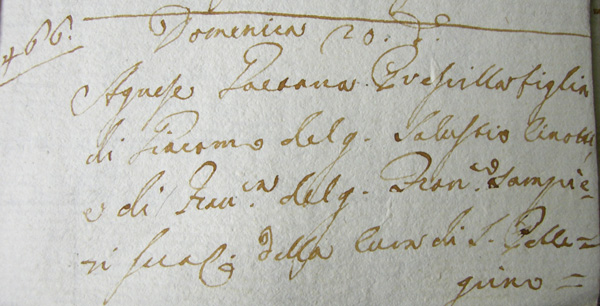 466. Domenica 20. d.º
Agnese Gaetana Prescilla figlia
di Giacomo del q. Salustio
e di Fran.ca del q. Fran.co Sampie=
ri sua C. della Cura di S. Pelle=
grino=